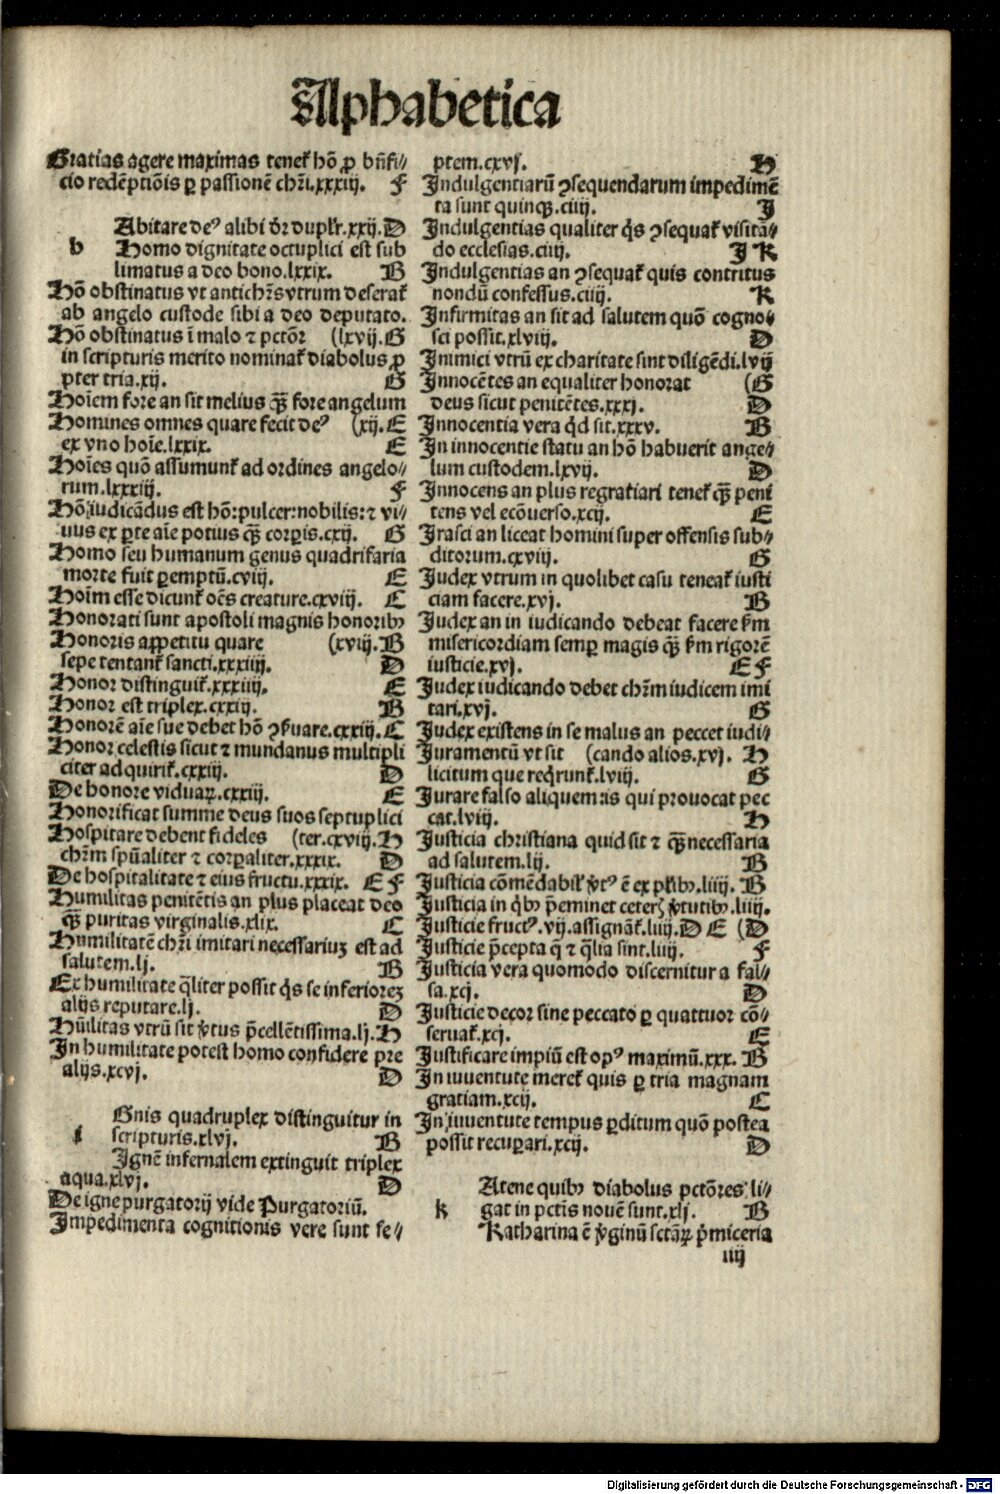 Alphabetica
Gratias agere maximas tenet᷑ hõ ꝓ bñfi⸗
cio redẽptiõis ꝑ passionẽ chr̃i.xxxiij. F
Abitare deꝰ alibi dr̃ duplr̃.xxij. D
h Homo dignitate octuplici est sub
limatus a deo bono.lxxix. B
Hõ obstinatus vt antichr̃s vtrum deserat᷑
ab angelo custode sibi a deo deputato.
Hõ obstinatus ĩ malo ⁊ pctõr (lxvij.G
in scripturis merito nominat᷑ diabolus ꝓ
pter tria.xij. G
Hoĩem fore an sit melius qꝫ̃ fore angelum
Homines omnes quare fecit deꝰ (xij.E
ex vno hoĩe.lxxix. E
Hoĩes quõ assumunt᷑ ad ordines angelo⸗
rum.lxxxiij. F
Hõ iudicãdus est hõ:pulcer:nobilis:⁊ vi⸗
uus ex ꝑte aĩe potius qꝫ̃ corꝑis.cxij. G
Homo seu humanum genus quadrifaria
morte fuit ꝑemptũ.cviij. E
Hoĩm esse dicunt᷑ oẽs creature.cxviij. C
Honorati sunt apostoli magnis honoribꝫ
Honoris appetitu quare (xviij.B
sepe tentant᷑ sancti.xxxiiij. D
Honor distinguit᷑.xxxiiij. E
Honor est triplex.cxxiij. B
Honorẽ aĩe sue debet hõ ꝯẜuare.cxxiij. C
Honor celestis sicut ⁊ mundanus multipli
citer adquirit᷑.cxxiij. D
De honore viduaꝝ.cxxiij. E
Honorificat summe deus suos septuplici
Hospitare debent fideles (ter.cxviij.H
chr̃m spũaliter ⁊ corꝑaliter.xxxix. D
De hospitalitate ⁊ eius fructu.xxxix. E F
Humilitas penitẽtis an plus placeat deo
qꝫ̃ puritas virginalis.xlix. C
Humilitatẽ chr̃i imitari necessariuꝫ est ad
salutem.lj. B
Ex humilitate q̃liter possit q̊s se inferiorez
alijs reputare.lj. D
Hũilitas vtrũ sit v̓tus p̃cellẽtissima.lj. H
In humilitate potest homo confidere pre
alijs.xcvj. D
Gnis quadruplex distinguitur in
i scripturis.xlvj. B
Ignẽ infernalem extinguit triplex
aqua.xlvj. D
De igne purgatorij vide Purgatoriũ.
Impedimenta cognitionis vere sunt se⸗
ptem.cxvj. H
Indulgentiarũ ꝯsequendarum impedimẽ
ta sunt quinqꝫ.ciiij. I
Indulgentias qualiter q̊s ꝯsequat᷑ visitã⸗
do ecclesias.ciiij. I K
Indulgentias an ꝯsequat᷑ quis contritus
nondũ confessus.ciiij. K
Infirmitas an sit ad salutem quõ cogno⸗
sci possit.xlviij. D
Inimici vtrũ ex charitate sint diligẽdi.lvij
Innocẽtes an equaliter honorat (G
deus sicut penitẽtes.xxxj. D
Innocentia vera q̊d sit.xxxv. B
In innocentie statu an hõ habuerit ange⸗
lum custodem.lxvij. D
Innocens an plus regratiari tenet᷑ qꝫ̃ peni
tens vel ecõuerso.xcij. E
Irasci an liceat homini super offensis sub⸗
ditorum.cxviij. G
Judex vtrum in quolibet casu teneat᷑ iusti
ciam facere.xvj. B
Judex an in iudicando debeat facere ẜm
misericordiam semꝑ magis qꝫ̃ ẜm rigorẽ
iusticie.xvj. E F
Judex iudicando debet chr̃m iudicem imi
tari.xvj. G
Judex existens in se malus an peccet iudi⸗
Juramentũ vt sit (cando alios.xvj. H
licitum que reqr̃unt᷑.lviij. G
Jurare falso aliquem is qui prouocat pec
cat.lviij. H
Justicia christiana quid sit ⁊ qꝫ̃ necessaria
ad salutem.lij. B
Justicia cõmẽdabil̓ v̓tꝰ ẽ ex pl̓ibꝫ.liiij. B
Justicia in q̊bꝫ p̃eminet ceterꝭ v̓tutibꝫ.liiij.
Justicie fructꝰ.vij.assignãt᷑.liiij.D E (D
Justicie p̃cepta q̃ ⁊ q̃lia sint.liiij. F
Justicia vera quomodo discernitur a fal⸗
sa.xcj. D
Justicie decor sine peccato ꝑ quattuor cõ⸗
seruat᷑.xcj. E
Justificare impiũ est opꝰ maximũ.xxx. B
In iuuentute meret᷑ quis ꝑ tria magnam
gratiam.xcij. C
In iuuentute tempus ꝑditum quõ postea
possit recuꝑari.xcij. D
Atene quibꝫ diabolus pctõres li⸗
k gat in pctis nouẽ sunt.xlj. B
Katharina ẽ v̓ginũ sctãꝝ p̓miceria
iiij
Digitalisierung gefördert durch die Deutsche Forschungsgemeinschaft - DFG